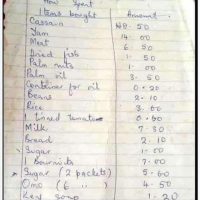 How Spent
Items bought Amount
Cassava 48.50
Yam 14.00
Meat 6.50
Dried fish 1.50
Palm nuts 1.00
Palm oil 3.50
Container for oil 0.20
Beans 2.10
Rice 3.00
1 tinned Tomatoes 0.60
Milk 7.30
Bread 2.10
Sugar 1.00
1 Bournvita 7.00
Sugar (2 packets) 5.60
Omo (6 ") 4.50
Key soap 1.20